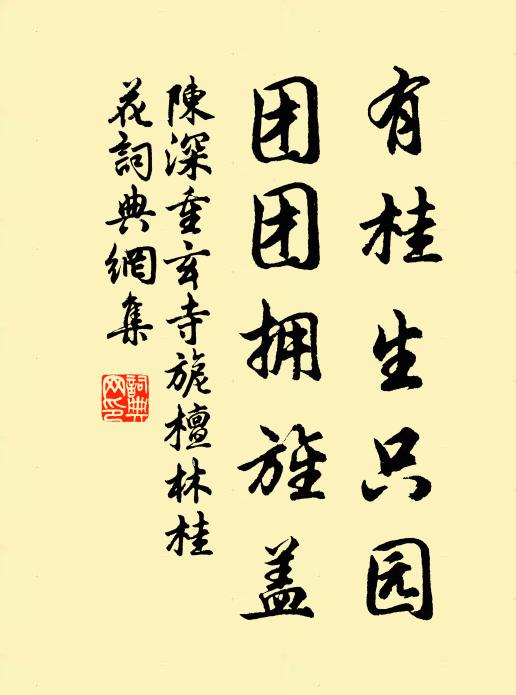 有桂生只园
团团拥旌盖
陳深重玄寺旃檀林桂
花詞典網集
詞典
网印